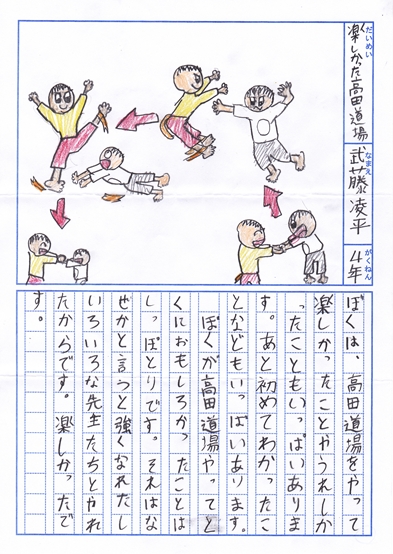 だいめい
楽しかった高田道場
なまえ
武藤凌平
がくねん
4年
ぼくは、高田道場をやって
楽しかったことやうれしか
ったこともいっぱいありま
す。あと初めてわかったこ
となどもいっぱいあります。
ぼくが高田道場やってと
くにおもしろかったことは
しっぽとりです。それはな
ぜかと言うと強くなれたし
いろいろな先生たちとやれ
たからです。楽しかったで
す。